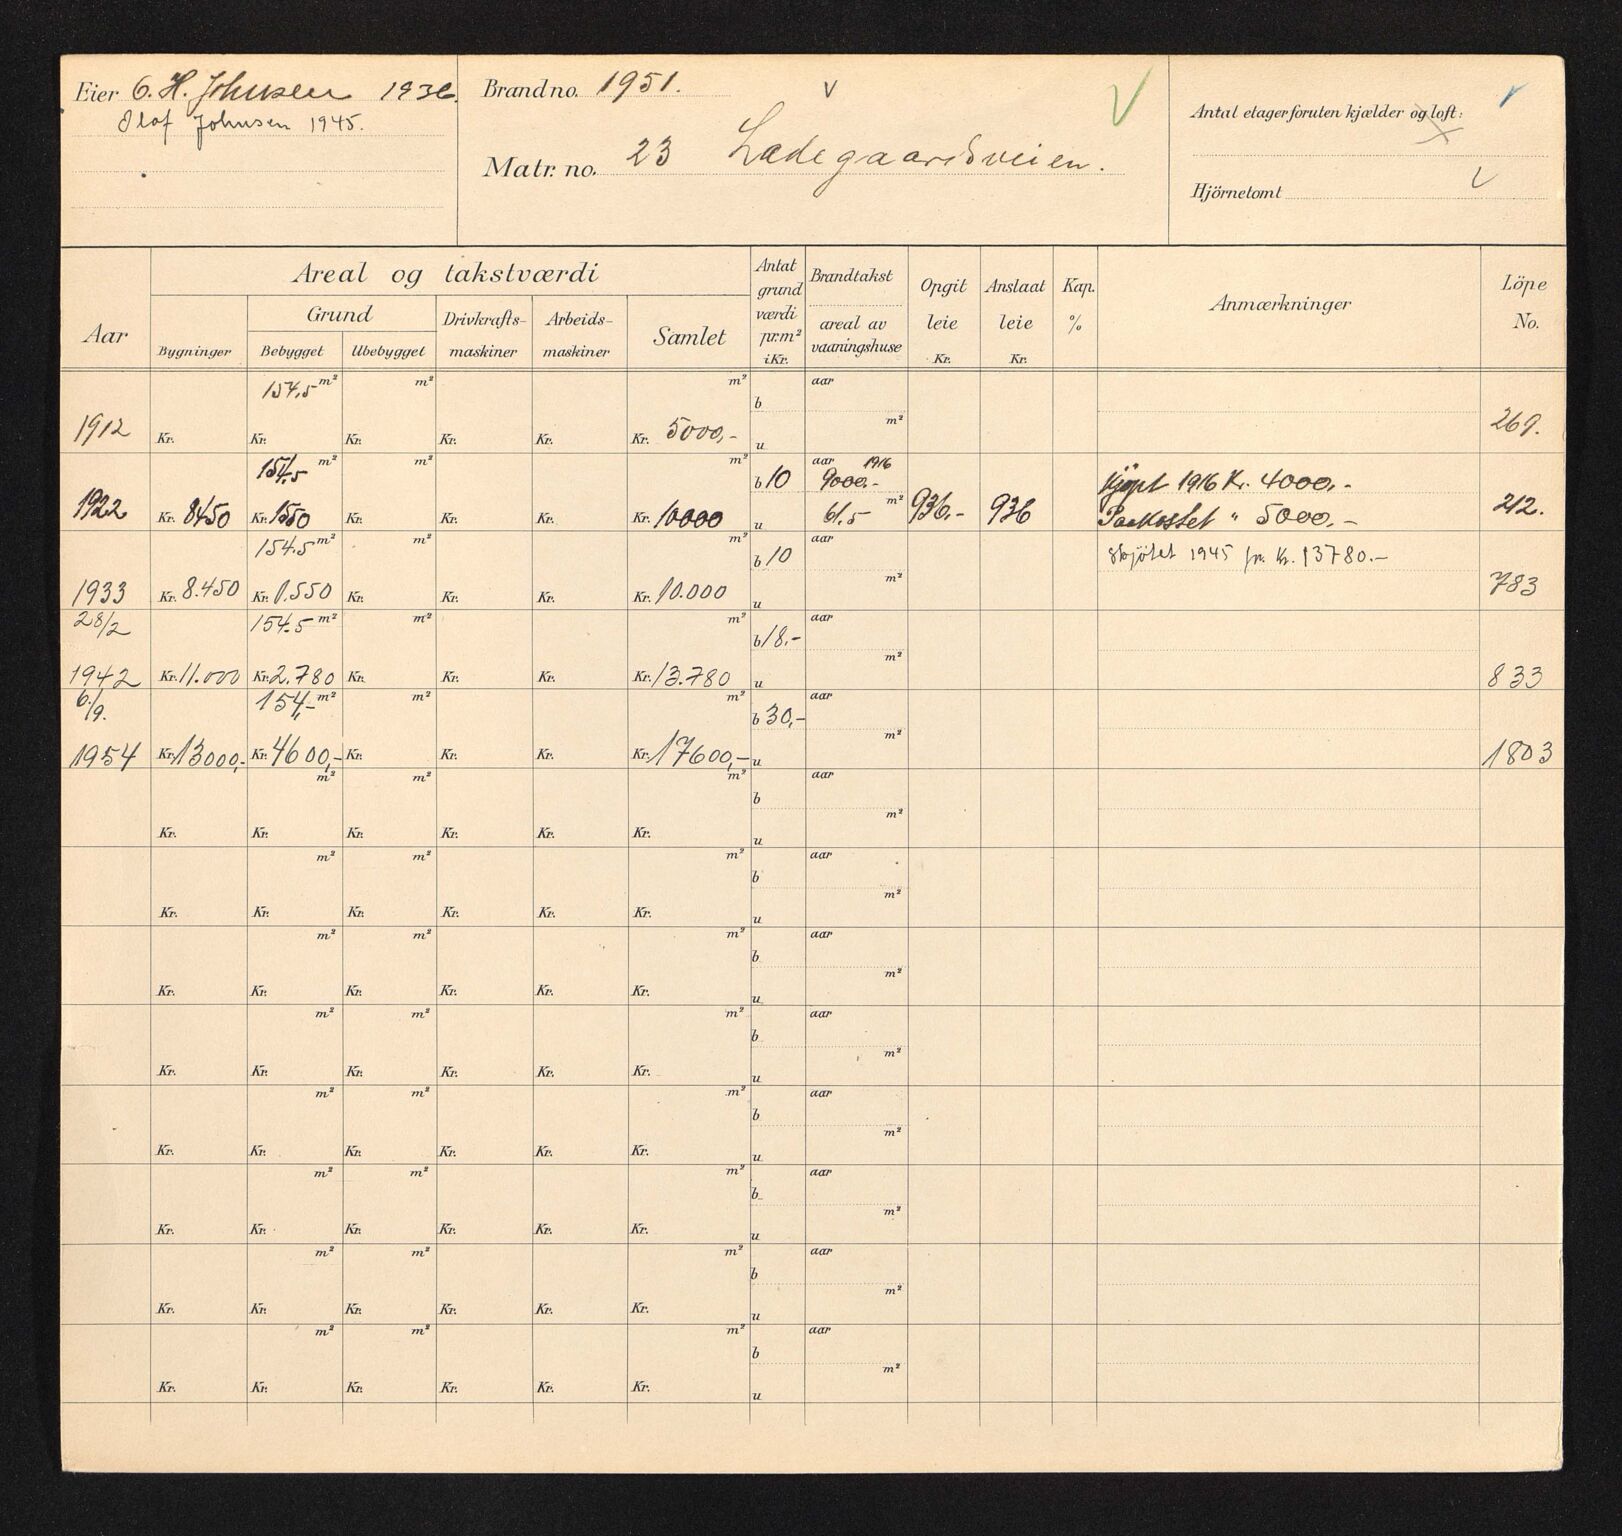 Eier O. H. Johnsen 1936.
Olaf Johnsen 1945.
Brand no. 1951.
Matr. no. 23 Ladegaardsveien.
Antal etager foruten kjælder og loft:
Hjörnetomt
Areal og takstværdi
Aar
Bygninger
Grund
Bebygget
Ubebygget
Drivkrafts-
maskiner
Arbeids-
maskiner
Samlet
Antat
grund
værdi
pr. m²
i Kr.
Brandtakst
areal av
vaaningshuse
Opgit
leie
Kr.
Anslaat
leie
Kr.
Kap.
%
Anmærkninger
Löpe
No.
154.5 m² m² m² aar
b m²
1912 Kr. Kr. Kr. Kr. Kr. Kr. 5000,- u 269.
154.5 m² m² m² b 10 aar 1916
9000.- kjöpt 1916 Kr. 4000,-
1922 Kr. 8450 Kr. 1550 Kr. Kr. Kr. Kr. 10000 u 61.5 m² 936,- 936 Paakostet " 5000,- 212.
154.5 m² m² m² b 10 aar skjötet 1945 for Kr. 13780.-
1933 Kr. 8.450 Kr. 1.550 Kr. Kr. Kr. Kr. 10.000 u m² 783
28/2 154.5 m² m² m² b 18.- aar
1942 Kr. 11.000 Kr. 2.780 Kr. Kr. Kr. Kr. 13.780 u m² 833
6/9. 154,- m² m² m² b 30,- aar
1954 Kr. 13000,- Kr. 4600,- Kr. Kr. Kr. Kr. 17600,- u m² 1803
m² m² m² b aar
Kr. Kr. Kr. Kr. Kr. Kr. u m²
m² m² m² b aar
Kr. Kr. Kr. Kr. Kr. Kr. u m²
m² m² m² b aar
Kr. Kr. Kr. Kr. Kr. Kr. u m²
m² m² m² b aar
Kr. Kr. Kr. Kr. Kr. Kr. u m²
m² m² m² b aar
Kr. Kr. Kr. Kr. Kr. Kr. u m²
m² m² m² b aar
Kr. Kr. Kr. Kr. Kr. Kr. u m²
m² m² m² b aar
Kr. Kr. Kr. Kr. Kr. Kr. u m²
m² m² m² b aar
Kr. Kr. Kr. Kr. Kr. Kr. u m²